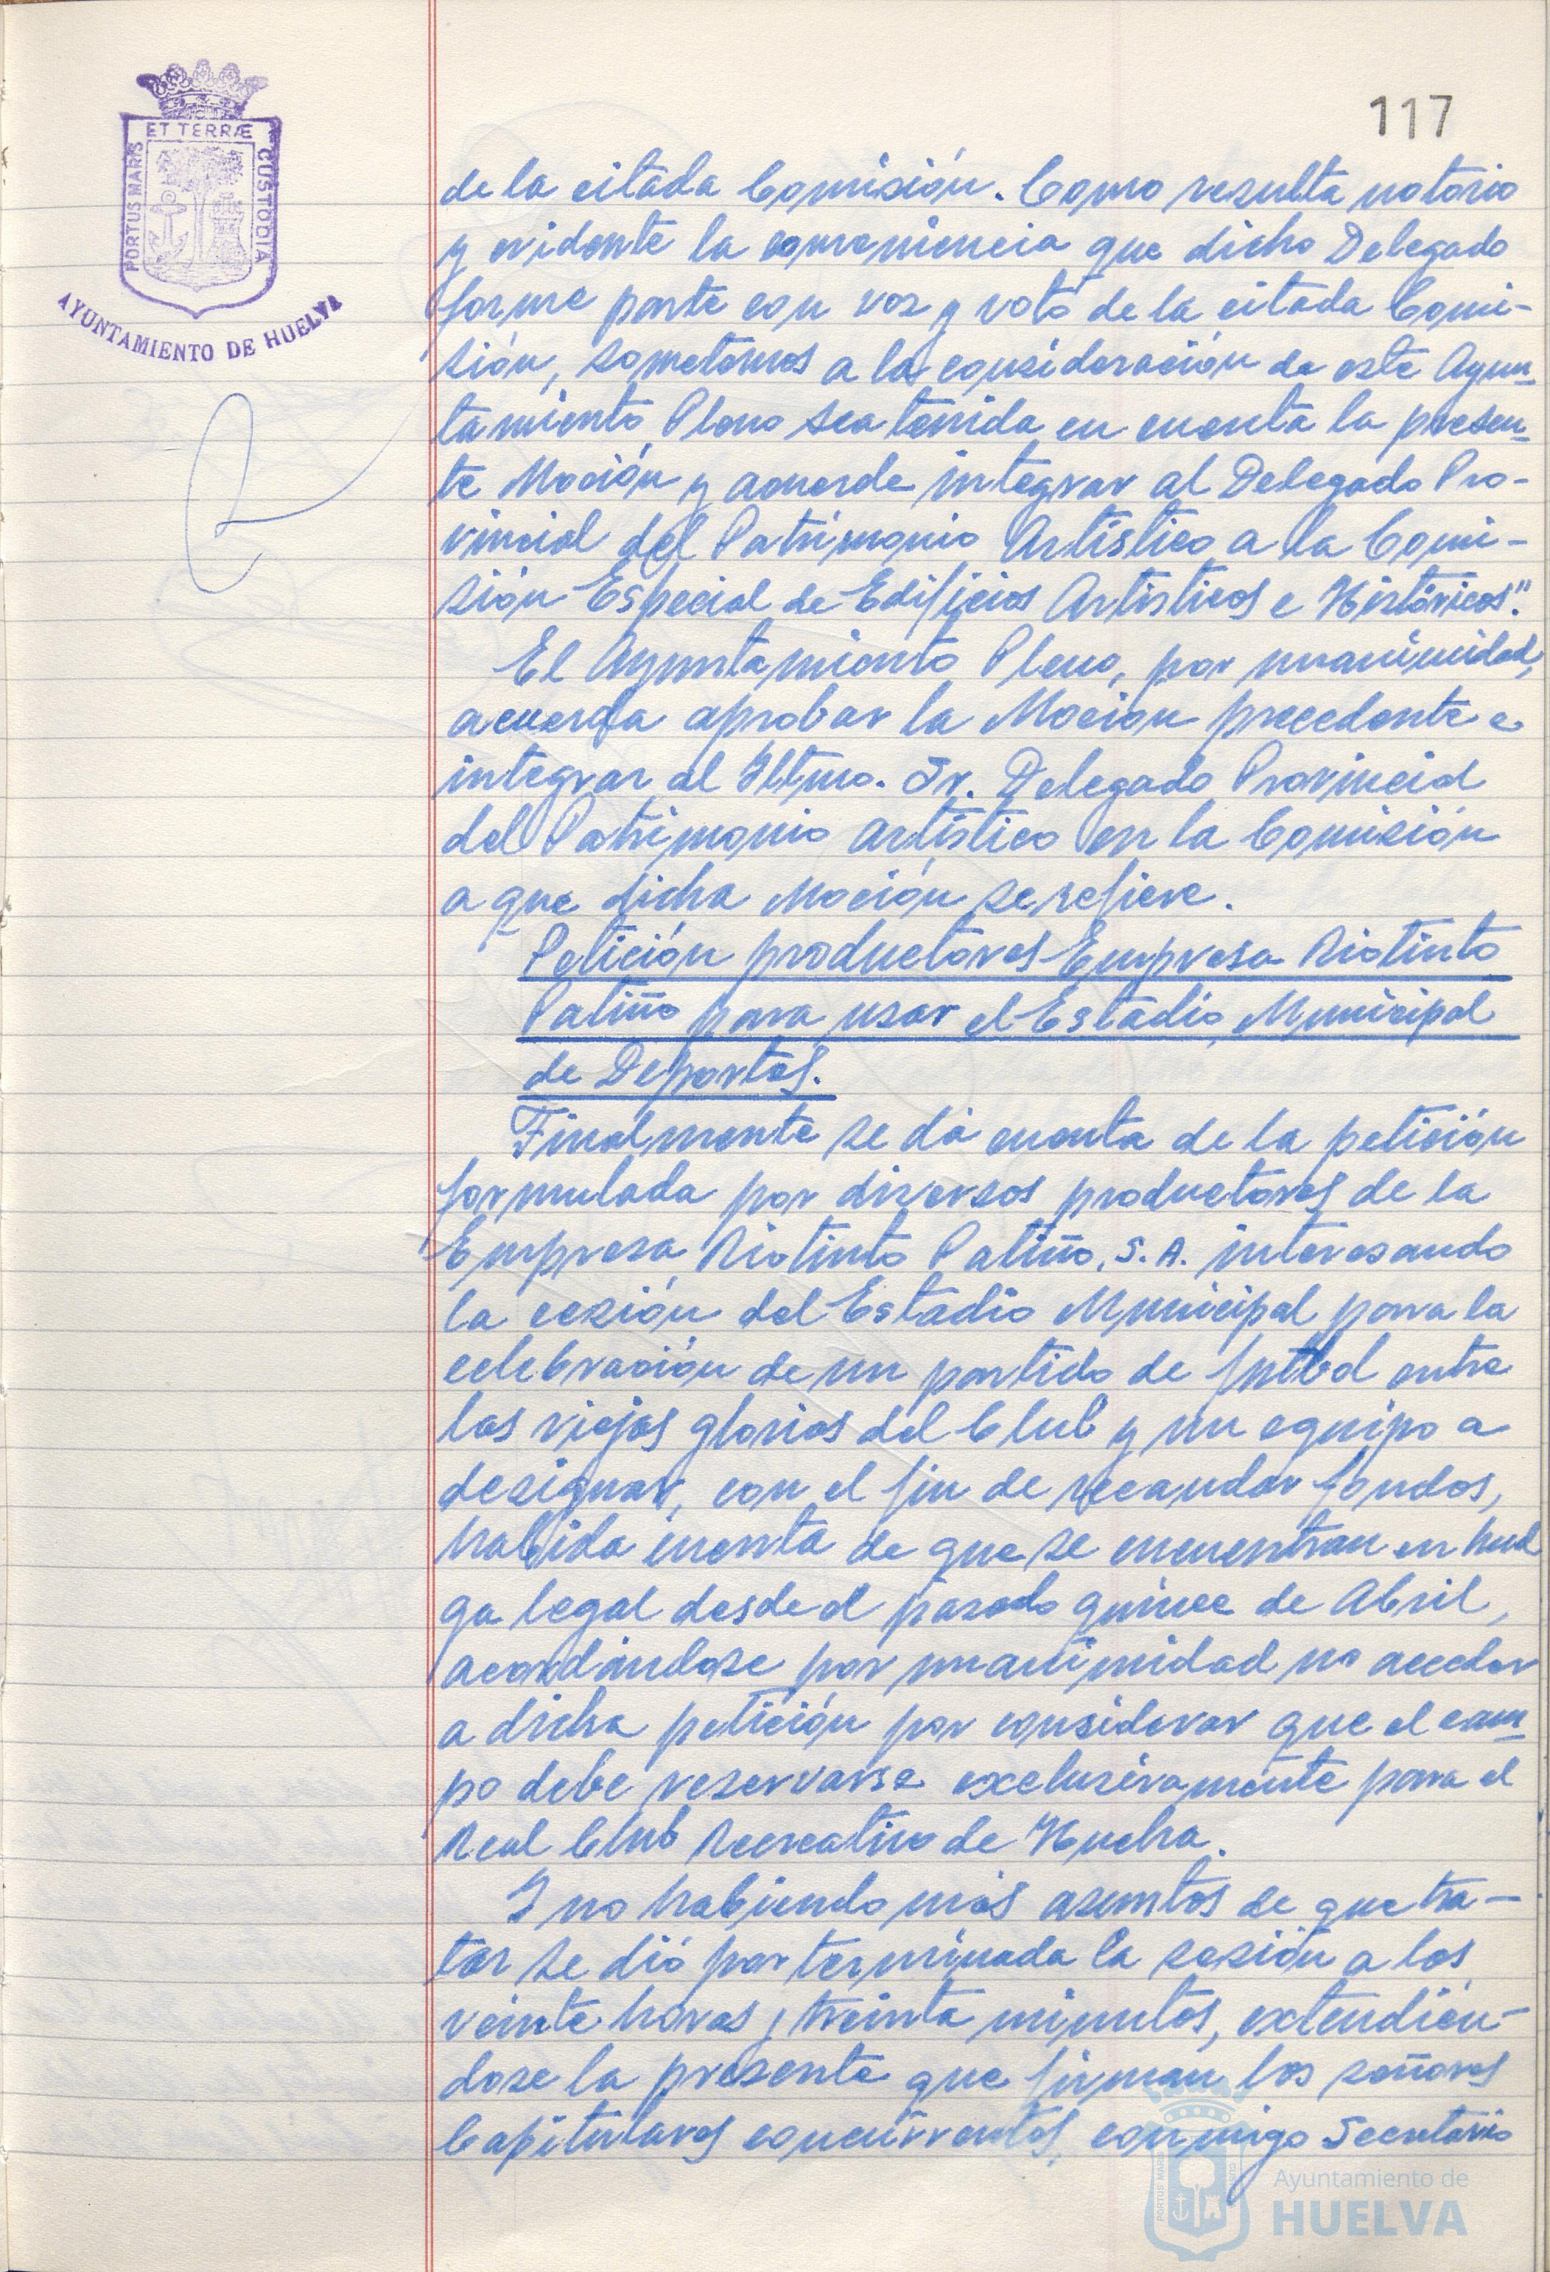 ET TERRÆ
PORTUS MARIS
CUSTODIA
AYUNTAMIENTO DE HUELVA
117
de la citada Comisión. Como resulta notorio
y evidente la conveniencia que dicho Delegado
forme parte con voz y voto de la citada Comi-
sión, sometemos a la consideración de este Ayun-
tamiento Pleno sea tenida en cuenta la presen-
te Moción y acuerde integrar al Delegado Pro-
vincial del Patrimonio Artístico a la Comi-
sión Especial de Edificios Artísticos e Históricos".
El Ayuntamiento Pleno, por unanimidad,
acuerda aprobar la Moción precedente e
integrar al Iltmo. Sr. Delegado Provincial
del Patrimonio artístico en la Comisión
a que dicha Moción se refiere.
Petición productores Empresa Riotinto
Patiño para usar el Estadio Municipal
de Deportes.
Finalmente se dá cuenta de la petición
formulada por diversos productores de la
Empresa Riotinto Patiño, S.A. interesando
la cesión del Estadio Municipal para la
celebración de un partido de futbol entre
las viejas glorias del Club y un equipo a
designar, con el fin de recaudar fondos,
habida cuenta de que se encuentran en huel
ga legal desde el pasado quince de Abril,
acordándose por unanimidad no acceder
a dicha petición por considerar que el cam-
po debe reservarse exclusivamente para el
Real Club Recreativo de Huelva.
Y no habiendo más asuntos de que tra-
tar se dió por terminada la sesión a las
veinte horas y treinta minutos, extendién-
dose la presente que firman los señores
Capitulares concurrentes, conmigo Secretario
Ayuntamiento de
HUELVA